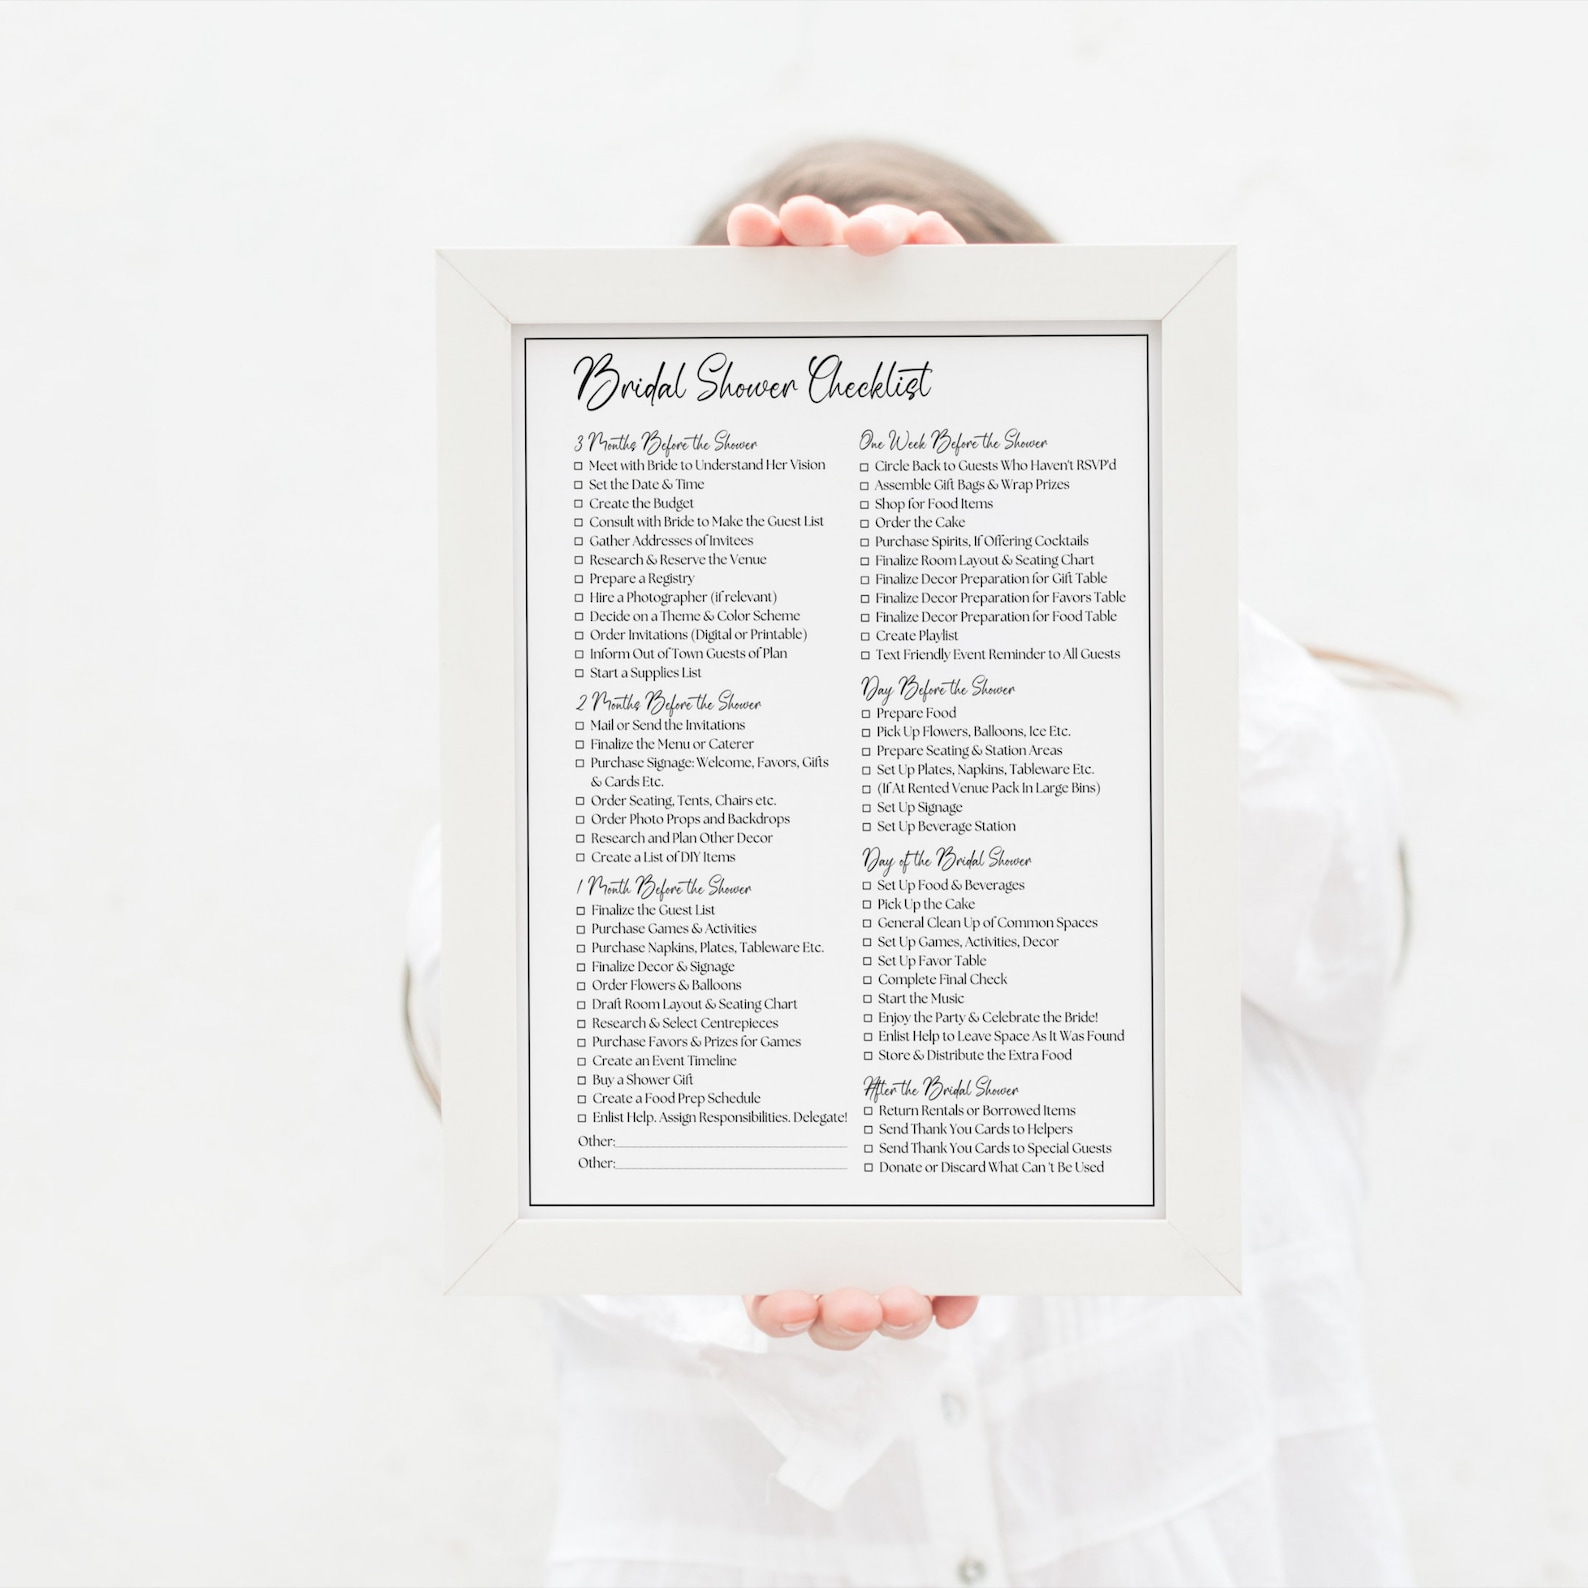 Bridal Shower Checklist
3 Months Before the Shower
Meet with Bride to Understand Her Vision
Set the Date & Time
Create the Budget
Consult with Bride to Make the Guest List
Gather Addresses of Invitees
Research & Reserve the Venue
Prepare a Registry
Hire a Photographer (if relevant)
Decide on a Theme & Color Scheme
Order Invitations (Digital or Printable)
Inform Out of Town Guests of Plan
Start a Supplies List
2 Months Before the Shower
Mail or Send the Invitations
Finalize the Menu or Caterer
Purchase Signage: Welcome, Favors, Gifts
& Cards Etc.
Order Seating, Tents, Chairs etc.
Order Photo Props and Backdrops
Research and Plan Other Decor
Create a List of DIY Items
1 Month Before the Shower
Finalize the Guest List
Purchase Games & Activities
Purchase Napkins, Plates, Tableware Etc.
Finalize Decor & Signage
Order Flowers & Balloons
Draft Room Layout & Seating Chart
Research & Select Centrepieces
Purchase Favors & Prizes for Games
Create an Event Timeline
Buy a Shower Gift
Create a Food Prep Schedule
Enlist Help. Assign Responsibilities. Delegate!
Other:
Other:
One Week Before the Shower
Circle Back to Guests Who Haven't RSVP'd
Assemble Gift Bags & Wrap Prizes
Shop for Food Items
Order the Cake
Purchase Spirits, If Offering Cocktails
Finalize Room Layout & Seating Chart
Finalize Decor Preparation for Gift Table
Finalize Decor Preparation for Favors Table
Finalize Decor Preparation for Food Table
Create Playlist
Text Friendly Event Reminder to All Guests
Day Before the Shower
Prepare Food
Pick Up Flowers, Balloons, Ice Etc.
Prepare Seating & Station Areas
Set Up Plates, Napkins, Tableware Etc.
(If At Rented Venue Pack In Large Bins)
Set Up Signage
Set Up Beverage Station
Day of the Bridal Shower
Set Up Food & Beverages
Pick Up the Cake
General Clean Up of Common Spaces
Set Up Games, Activities, Decor
Set Up Favor Table
Complete Final Check
Start the Music
Enjoy the Party & Celebrate the Bride!
Enlist Help to Leave Space As It Was Found
Store & Distribute the Extra Food
After the Bridal Shower
Return Rentals or Borrowed Items
Send Thank You Cards to Helpers
Send Thank You Cards to Special Guests
Donate or Discard What Can 't Be Used